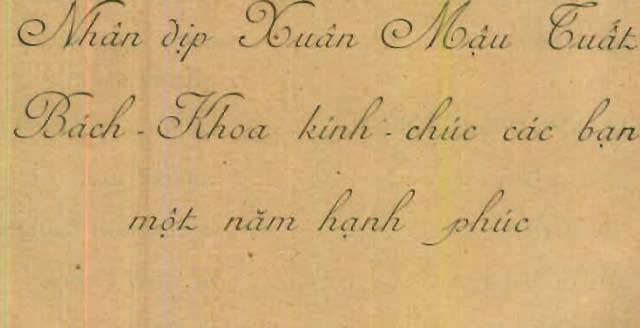 Nhân dịp Xuân Mậu Tuất
Bách - Khoa kính - chúc các bạn
một năm hạnh phúc